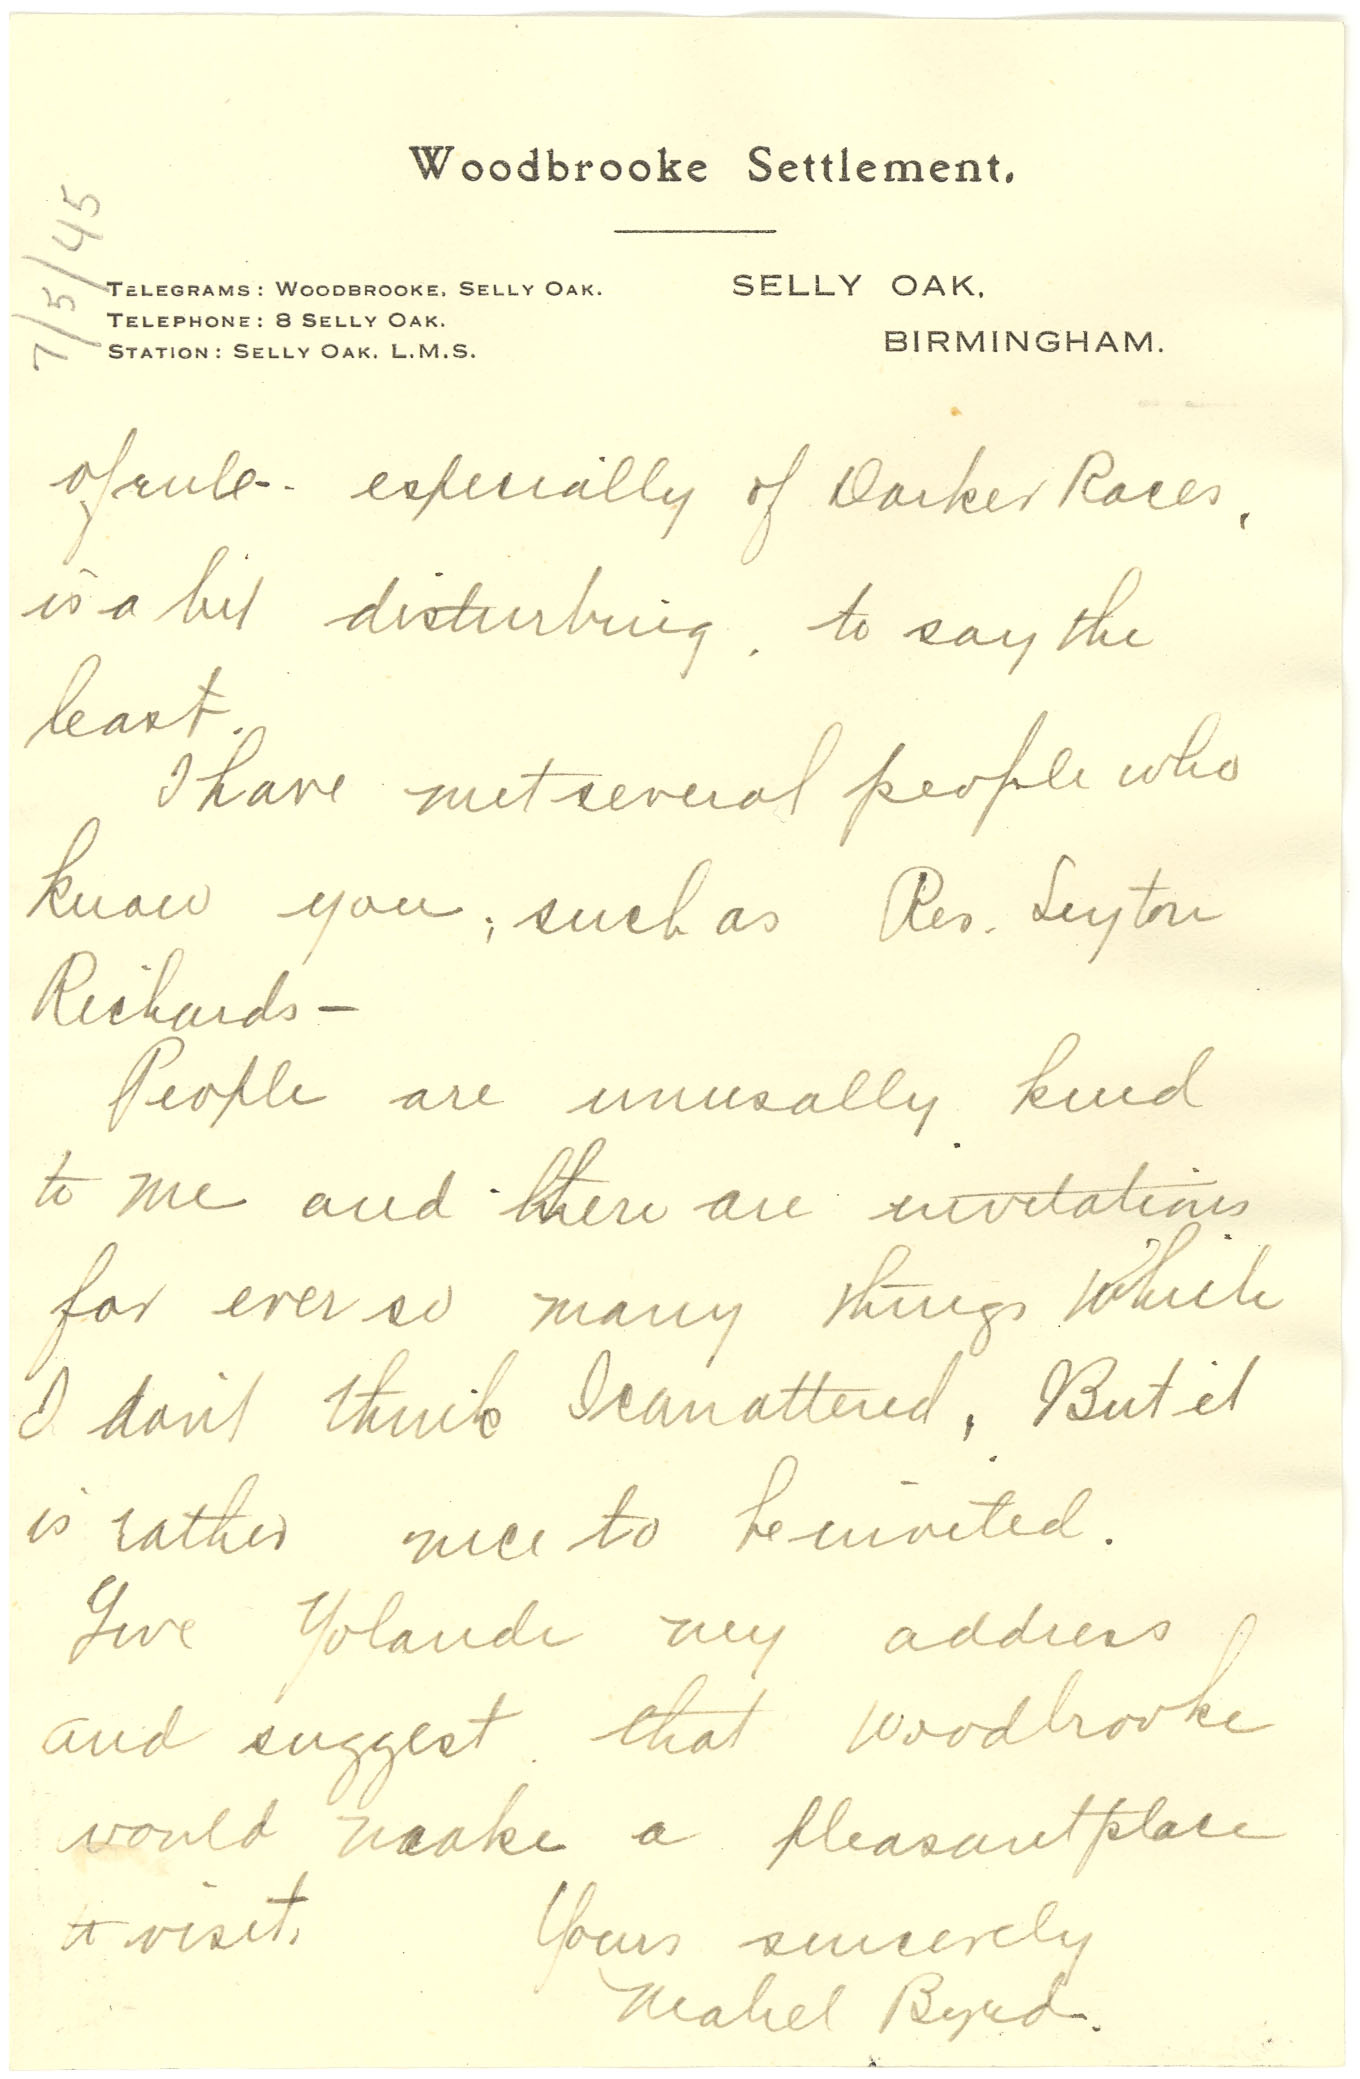 Woodbrooke Settlement.
7/5/45
TELEGRAMS: WOODBROOKE, SELLY OAK.
TELEPHONE: 8 SELLY OAK.
STATION: SELLY OAK. L.M.S.
SELLY OAK,
BIRMINGHAM.
of rule - especially of Darker Races,
is a bit disturbing, to say the
least.
I have met several people who
know you; such as Rev. Leyton
Richards -
People are unusally kind
to me and there are invitations
for ever so many things which
I don't think I can attend, But it
is rather nice to be invited.
Give Yolande my address
and suggest that Woodbrooke
would make a pleasant place
to visit.
Yours sincerely
Mabel Byrd.